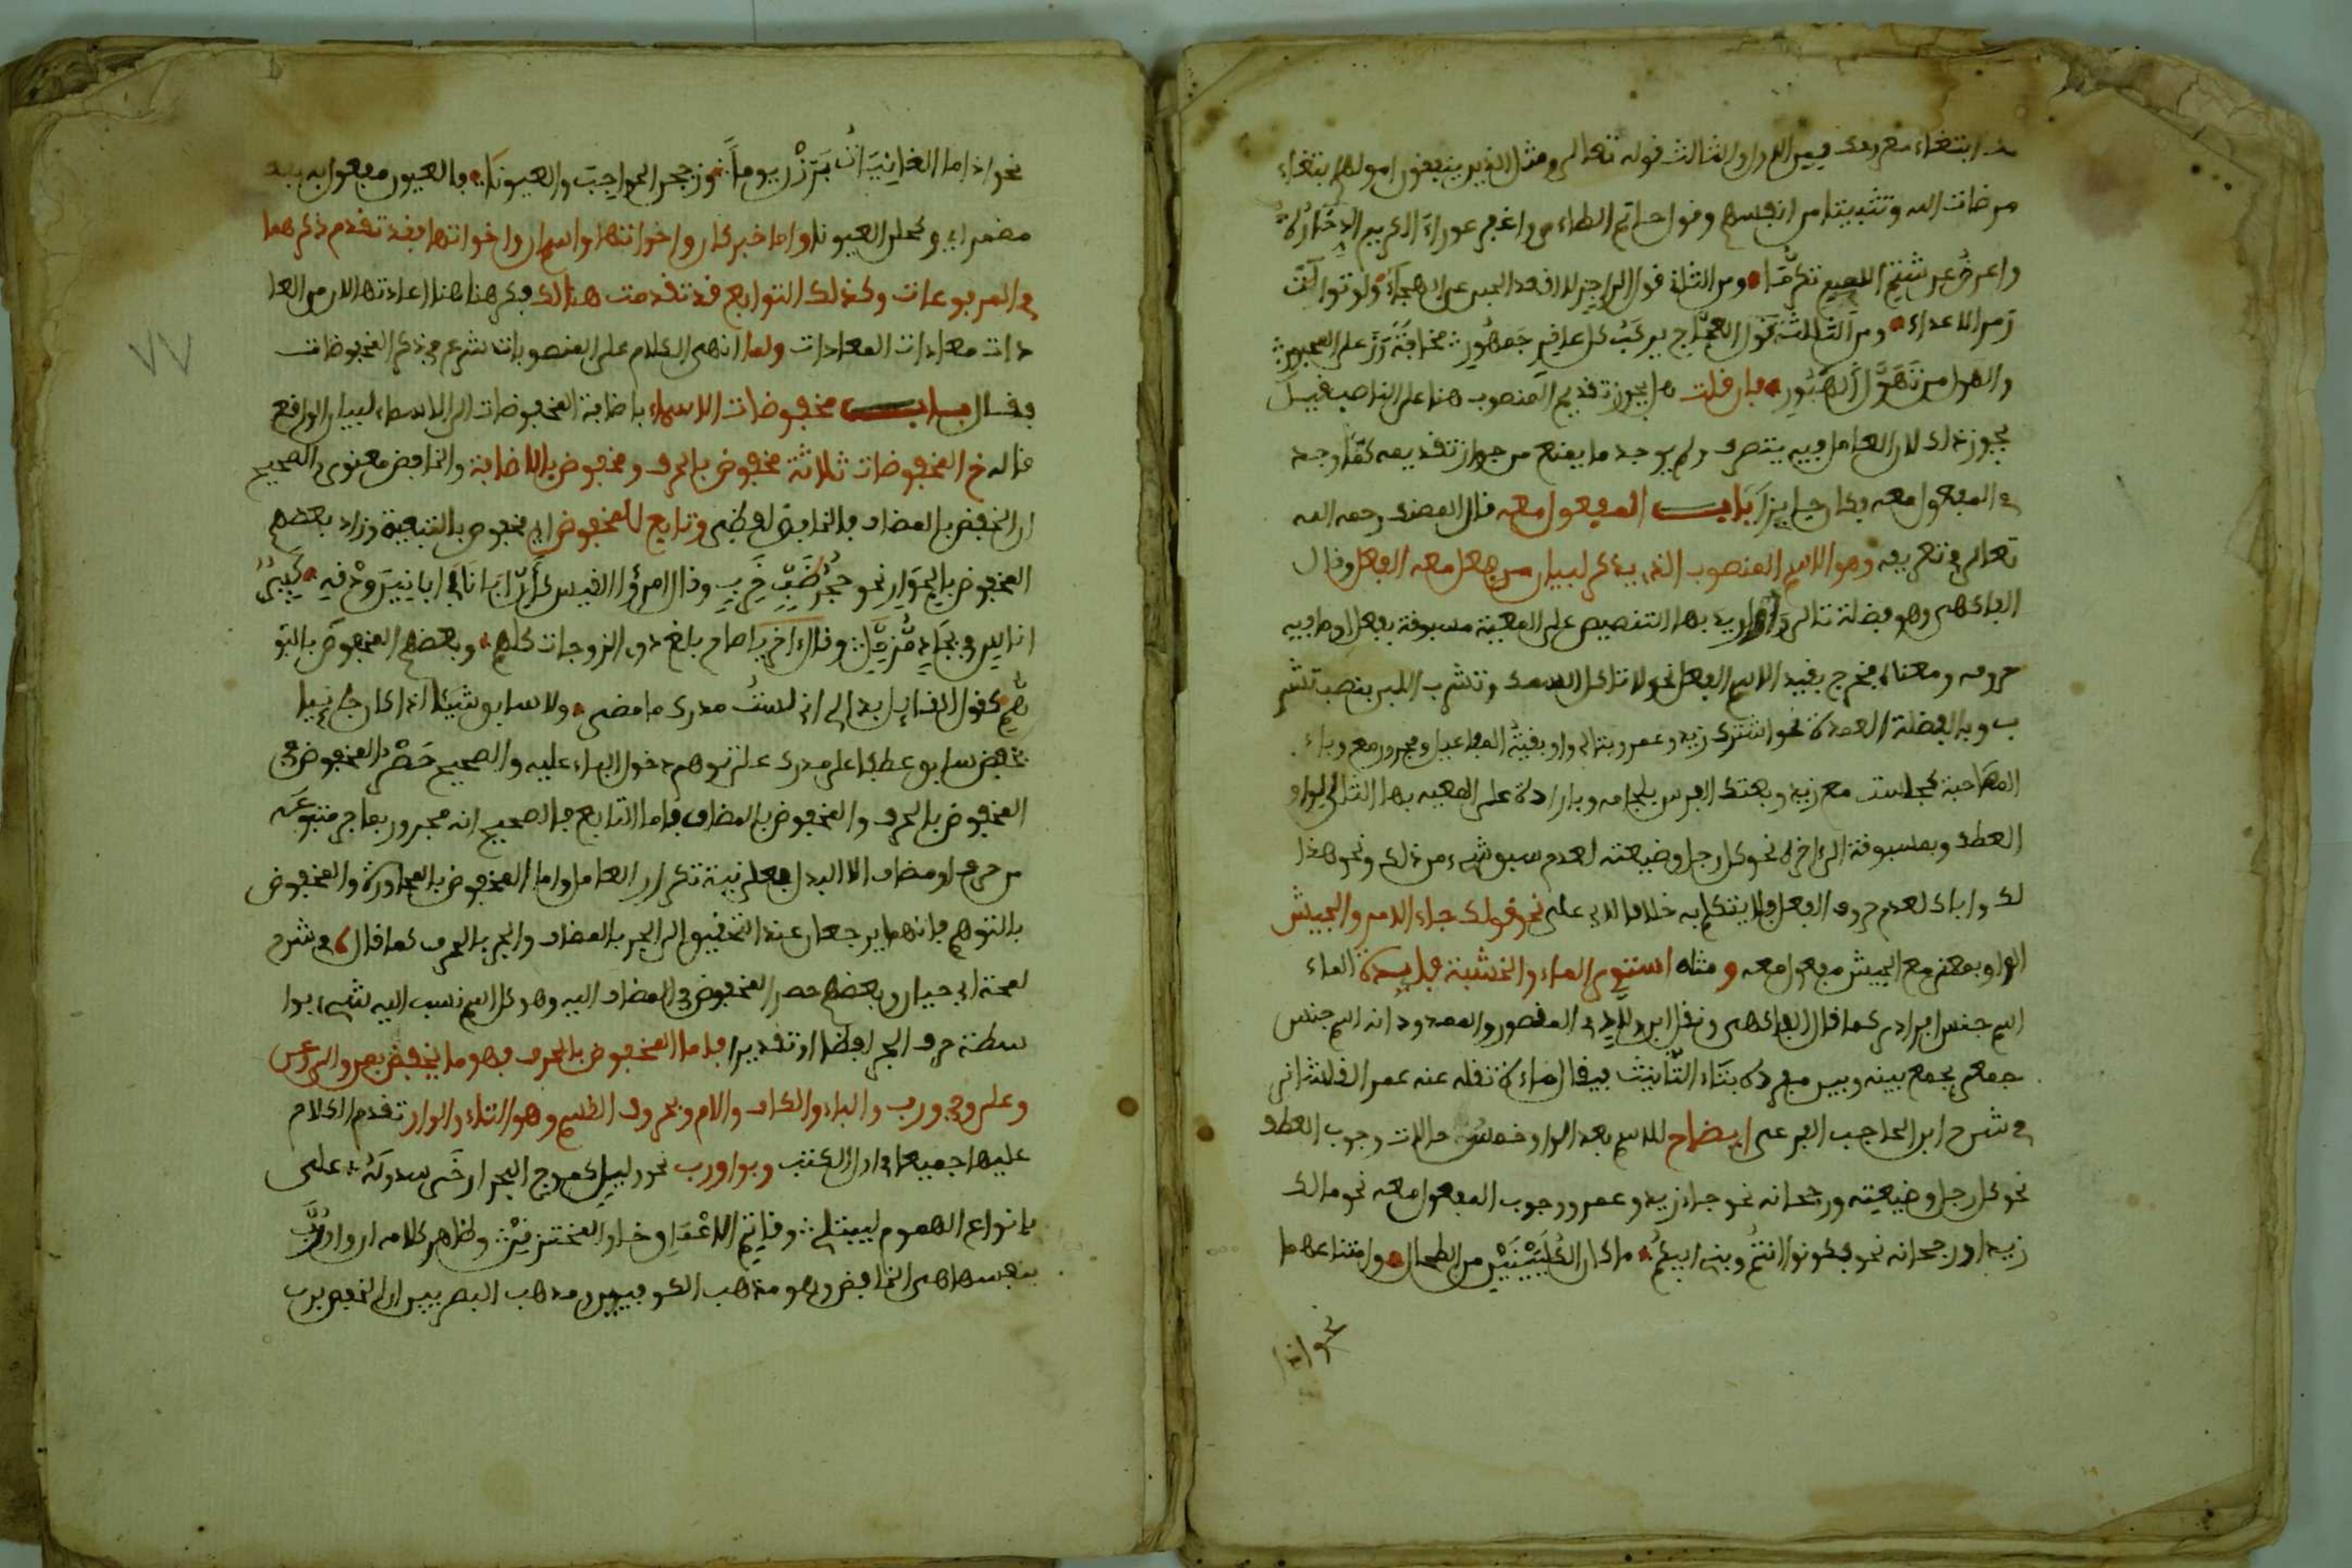 ابتغاء معروفك فيمن الاول والثالث قوله تعالى ومثل الذين ينفقون اموالهم ابتغاء
مرضات الله وتثبيتا من انفسهم وقول حاتم الطاءي واغفر عوراء الكريم ادخاره
واعرض عن شتم اللئيم تكرما ومن الثاني قول الراجز لا اقعد الجبن عن الهيجاء ولو توالت
زمر الاعداء ومن الثالث قول العجاج يركب كل عاقر جمهور مخافة وزعل المحبور
والهول من تهول الهبور فان قلت هل يجوز تقديم المنصوب هنا على الناصب قيل
يجوز ذلك لان العامل فيه يتصرف ولم يوجد ما يمنع من جواز تقديمه كما وجد
في المفعول معه فكان جايزا باب المفعول معه قال المصنف رحمه الله
تعالى في تعريفه وهو الاسم المنصوب الذي يذكر لبيان من فعل معه الفعل وقال
الفاكهي وهو فضلة تالي واو اريد بها التنصيص على المعية مسبوقة بفعل او ما فيه
حروفه ومعناه فخرج بقيد الاسم الفعل نحو لا تاكل السمك وتشرب اللبن بنصب تشر
ب وبالفضلة العمدة نحو اشترك زيد وعمرو وبتالي واو بقية المفاعيل ومجرور مع وباء
المصاحبة كجلست مع زيد وبعتك الفرس بلجامه وبارادة على المعية بها التالي لواو
العطف وبمسبوقة الى اخره نحو كل رجل وضيعته لعدم سبق شيء من ذلك ونحو هذا
لك واباك لعدم حروف الفعل فلا يتكلم به خلافا لابي علي نحو قولك جاء الامير والجيش
الواو بمعنى مع الجيش مفعول معه ومثله استوى الماء والخشبة فايدة الماء
اسم جنس افرادي كما قال الفاكهي ونقل ابن ولاد في المقصور والممدود انه اسم جنس
جمعي يجمع بينه وبين مفرده بتاء التانيث فيقال ماءة نقله عنه عمر القلشاني
في شرح ابن الحاجب الفرعي ايضاح للاسم بعد الواو خمس حالات وجوب العطف
نحو كل رجل وضيعته ورجحانه نحو جاء زيد وعمرو ووجوب المفعول معه نحو مالك
زيدا ورجحانه نحو فكونوا انتم وبني ابيكم مكان الكليتين من الطحال وامتناعهما
نحو اذا
نحو اذا ما الغانيات برزن يوما وزججن الحواجب والعيونا فالعيون مفعول به بفعل
مضمر اي وكحلن العيونا واما خبر كان واخواتها واسم ان واخواتها فقد تقدم ذكرهما
في المرفوعات وكذلك التوابع قد تقدمت هنالك فكرهنا هنا اعادتها لان من العا
دات معادات المعادات ولما انهى الكلام على المنصوبات شرع في ذكر المخفوضات
فقال باب مخفوضات الاسماء باضافة المخفوضات الى الاسماء لبيان الواقع
قاله خ المخفوضات ثلاثة مخفوض بالحرف ومخفوض بالاضافة والخافض معنوي والصحيح
ان الخفض بالمضاف فالخافض لفظي وتابع للمخفوض اي مخفوض بالتبعية وزاد بعضهم
المخفوض بالجوار نحو جحر ضب خرب وقال امرؤ القيس كان ابانا في افانين ودقه كبير
اناس في بجاد مزمل وقال اخر يا صاح بلغ ذوي الزوجات كلهم وبعضهم المخفوض بالتو
هم كقول القايل بدا لي اني لست مدرك ما مضى ولا سابق شيئا اذا كان جائيا
بخفض سابق عطفا على مدرك على توهم دخول الباء عليه والصحيح حصر المخفوض في
المخفوض بالحرف والمخفوض بالمضاف فاما التابع فالصحيح انه مجرور بما جر متبوعه
من حرف او مضاف الا البدل فعلى نية تكرار العامل واما المخفوض بالمجاورة والمخفوض
بالتوهم فانهما يرجعان عند التحقيق الى الجر بالمضاف والجر بالحرف كما قال في شرح
لمحة ابي حيان وبعضهم حصر المخفوض في المضاف اليه وهو كل اسم نسب اليه شيء بوا
سطة حرف الجر لفظا او تقديرا فاما المخفوض بالحرف فهو ما يخفض بمن والى وعن
وعلى وفي ورب والباء والكاف واللام وبحروف القسم وهو التاء والواو تقدم الكلام
عليها جميعا في اول الكتب وبواو رب نحو وليل كموج البحر ارخى سدوله على
بانواع الهموم ليبتلي وقاتم الاعماق خاوي المخترقن وظاهر كلامه ان واو رب
بنفسها هي الخافض وهو مذهب الكوفيين ومذهب البصريين ان الخفض برب